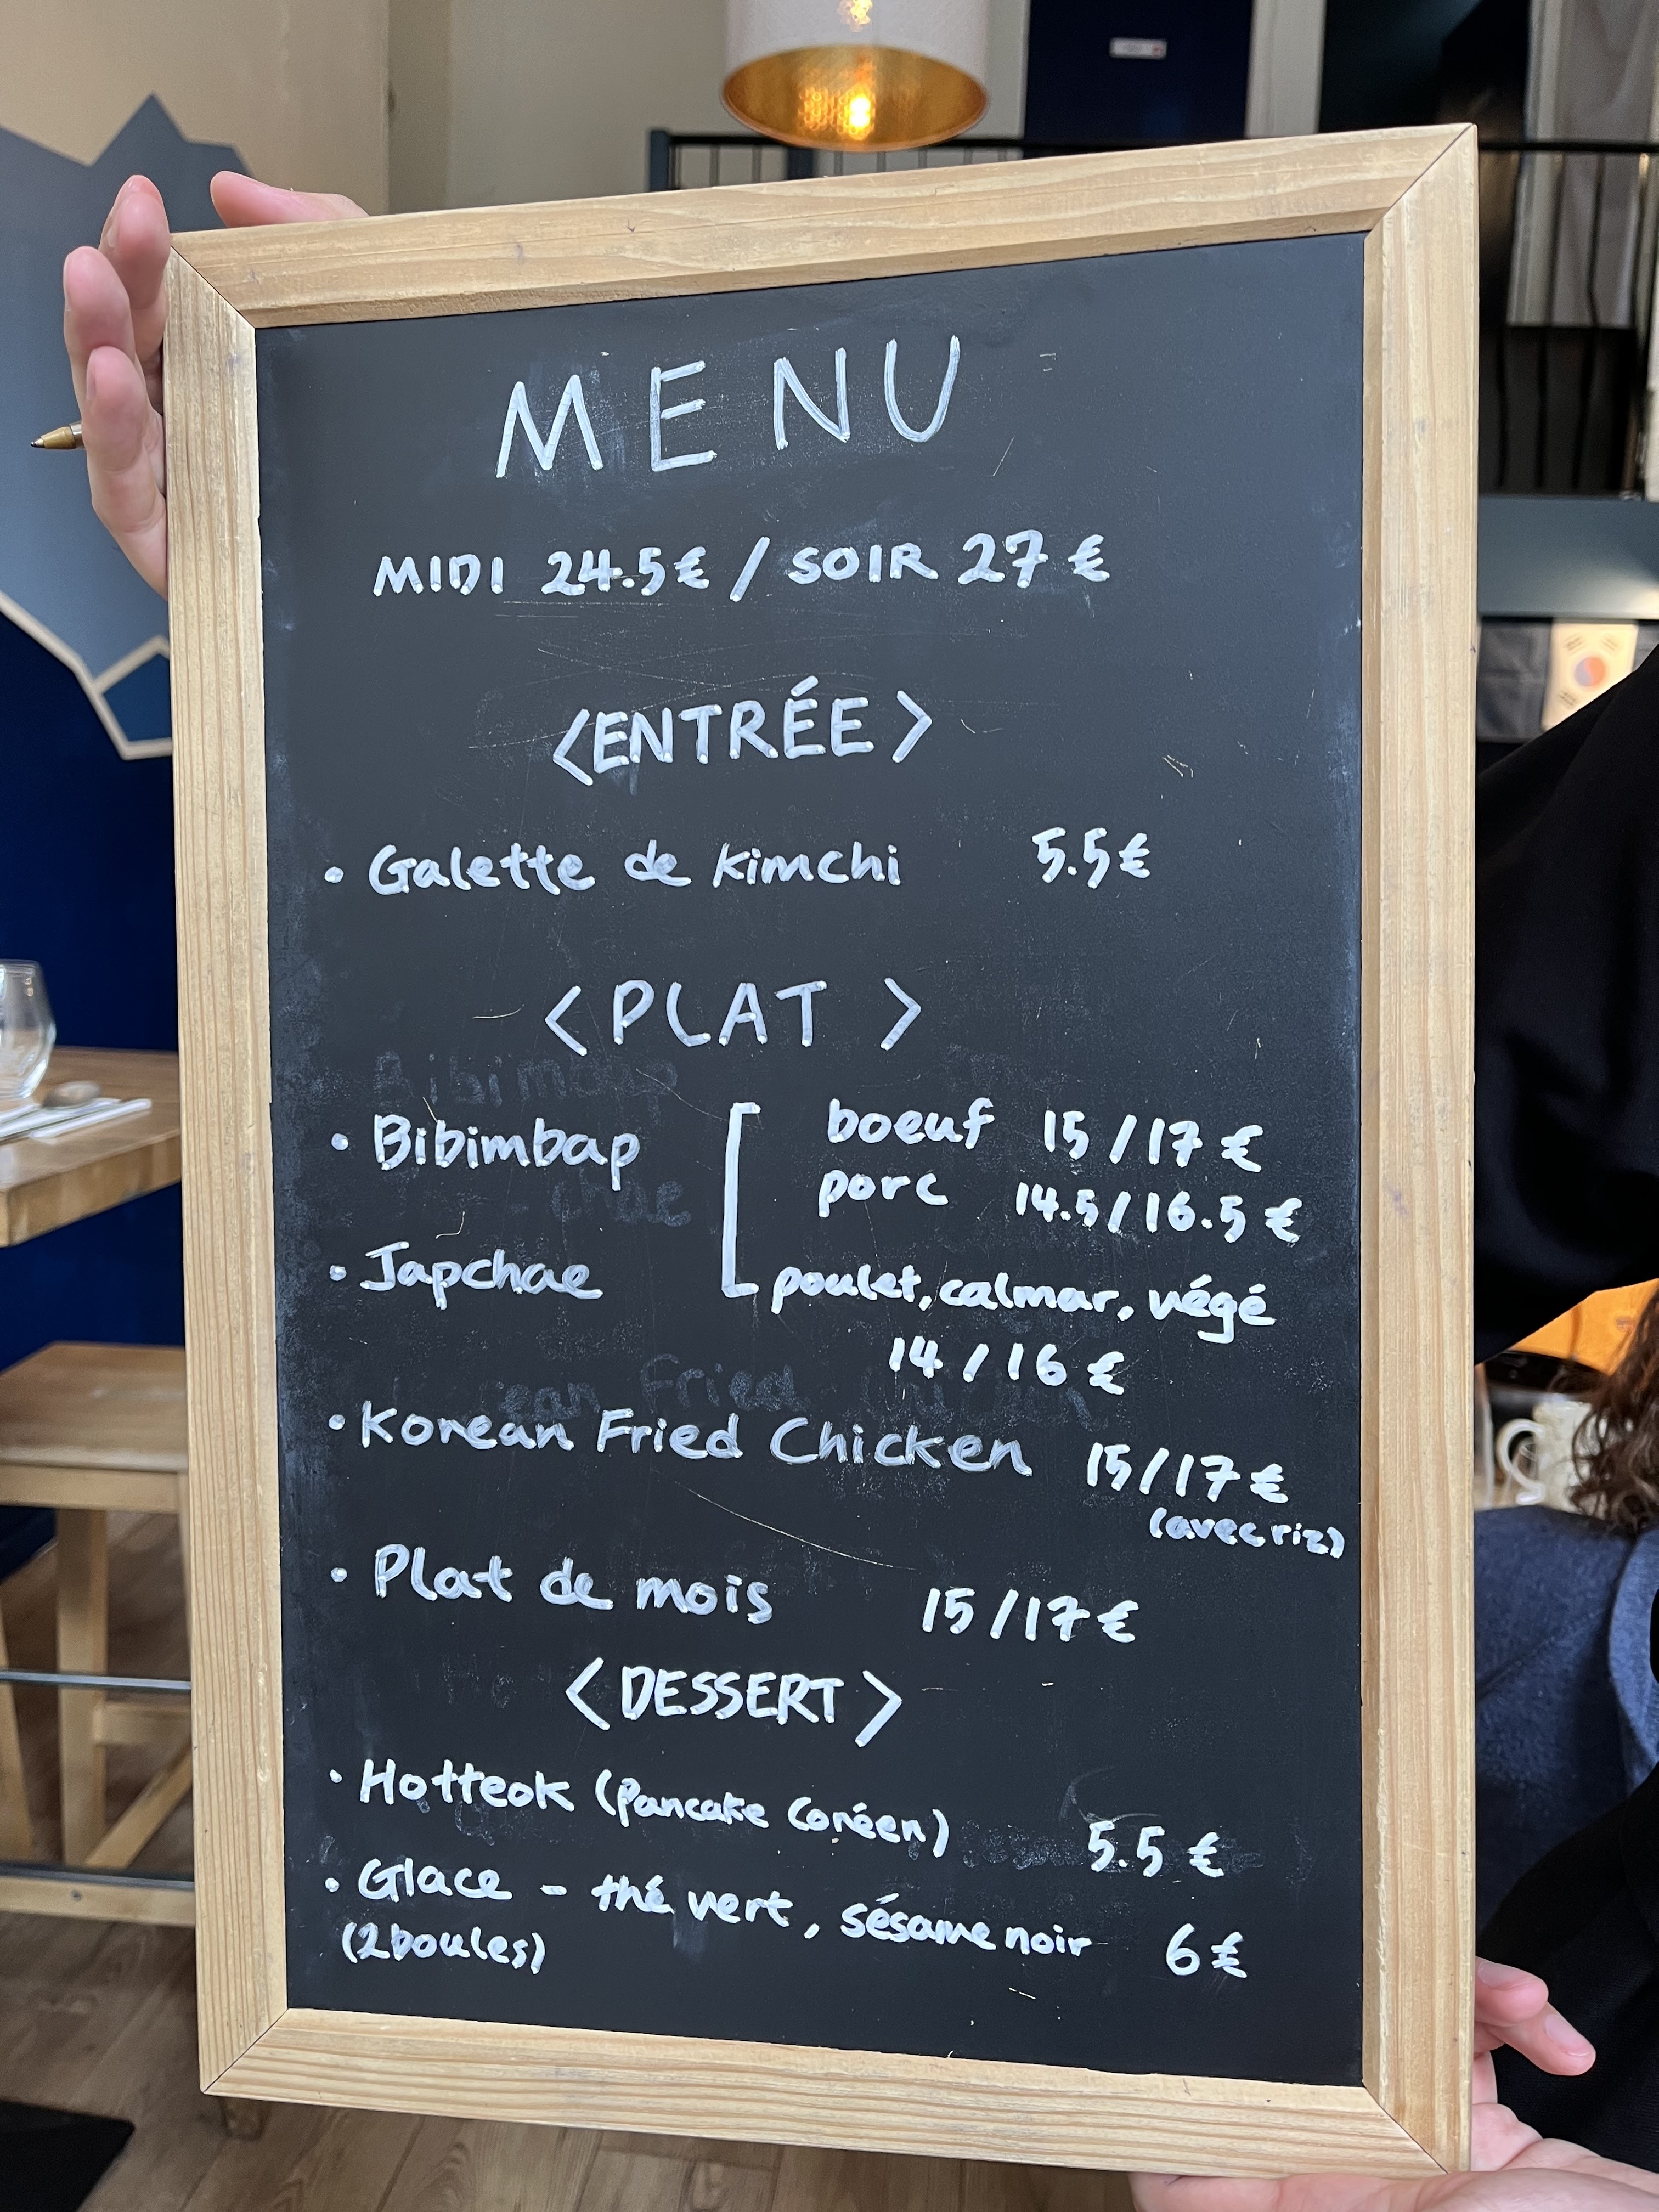 MENU
MIDI 24.5€ / SOIR 27€
<ENTRÉE>
• Galette de kimchi 5.5€
<PLAT>
• Bibimbap boeuf 15/17€
porc 14.5/16.5€
• Japchae poulet, calmar, végé
14/16€
• Korean Fried Chicken 15/17€
(avec riz)
• Plat de mois 15/17€
<DESSERT>
• Hotteok (Pancake Coréen) 5.5€
• Glace - thé vert, sésame noir 6€
(2boules)